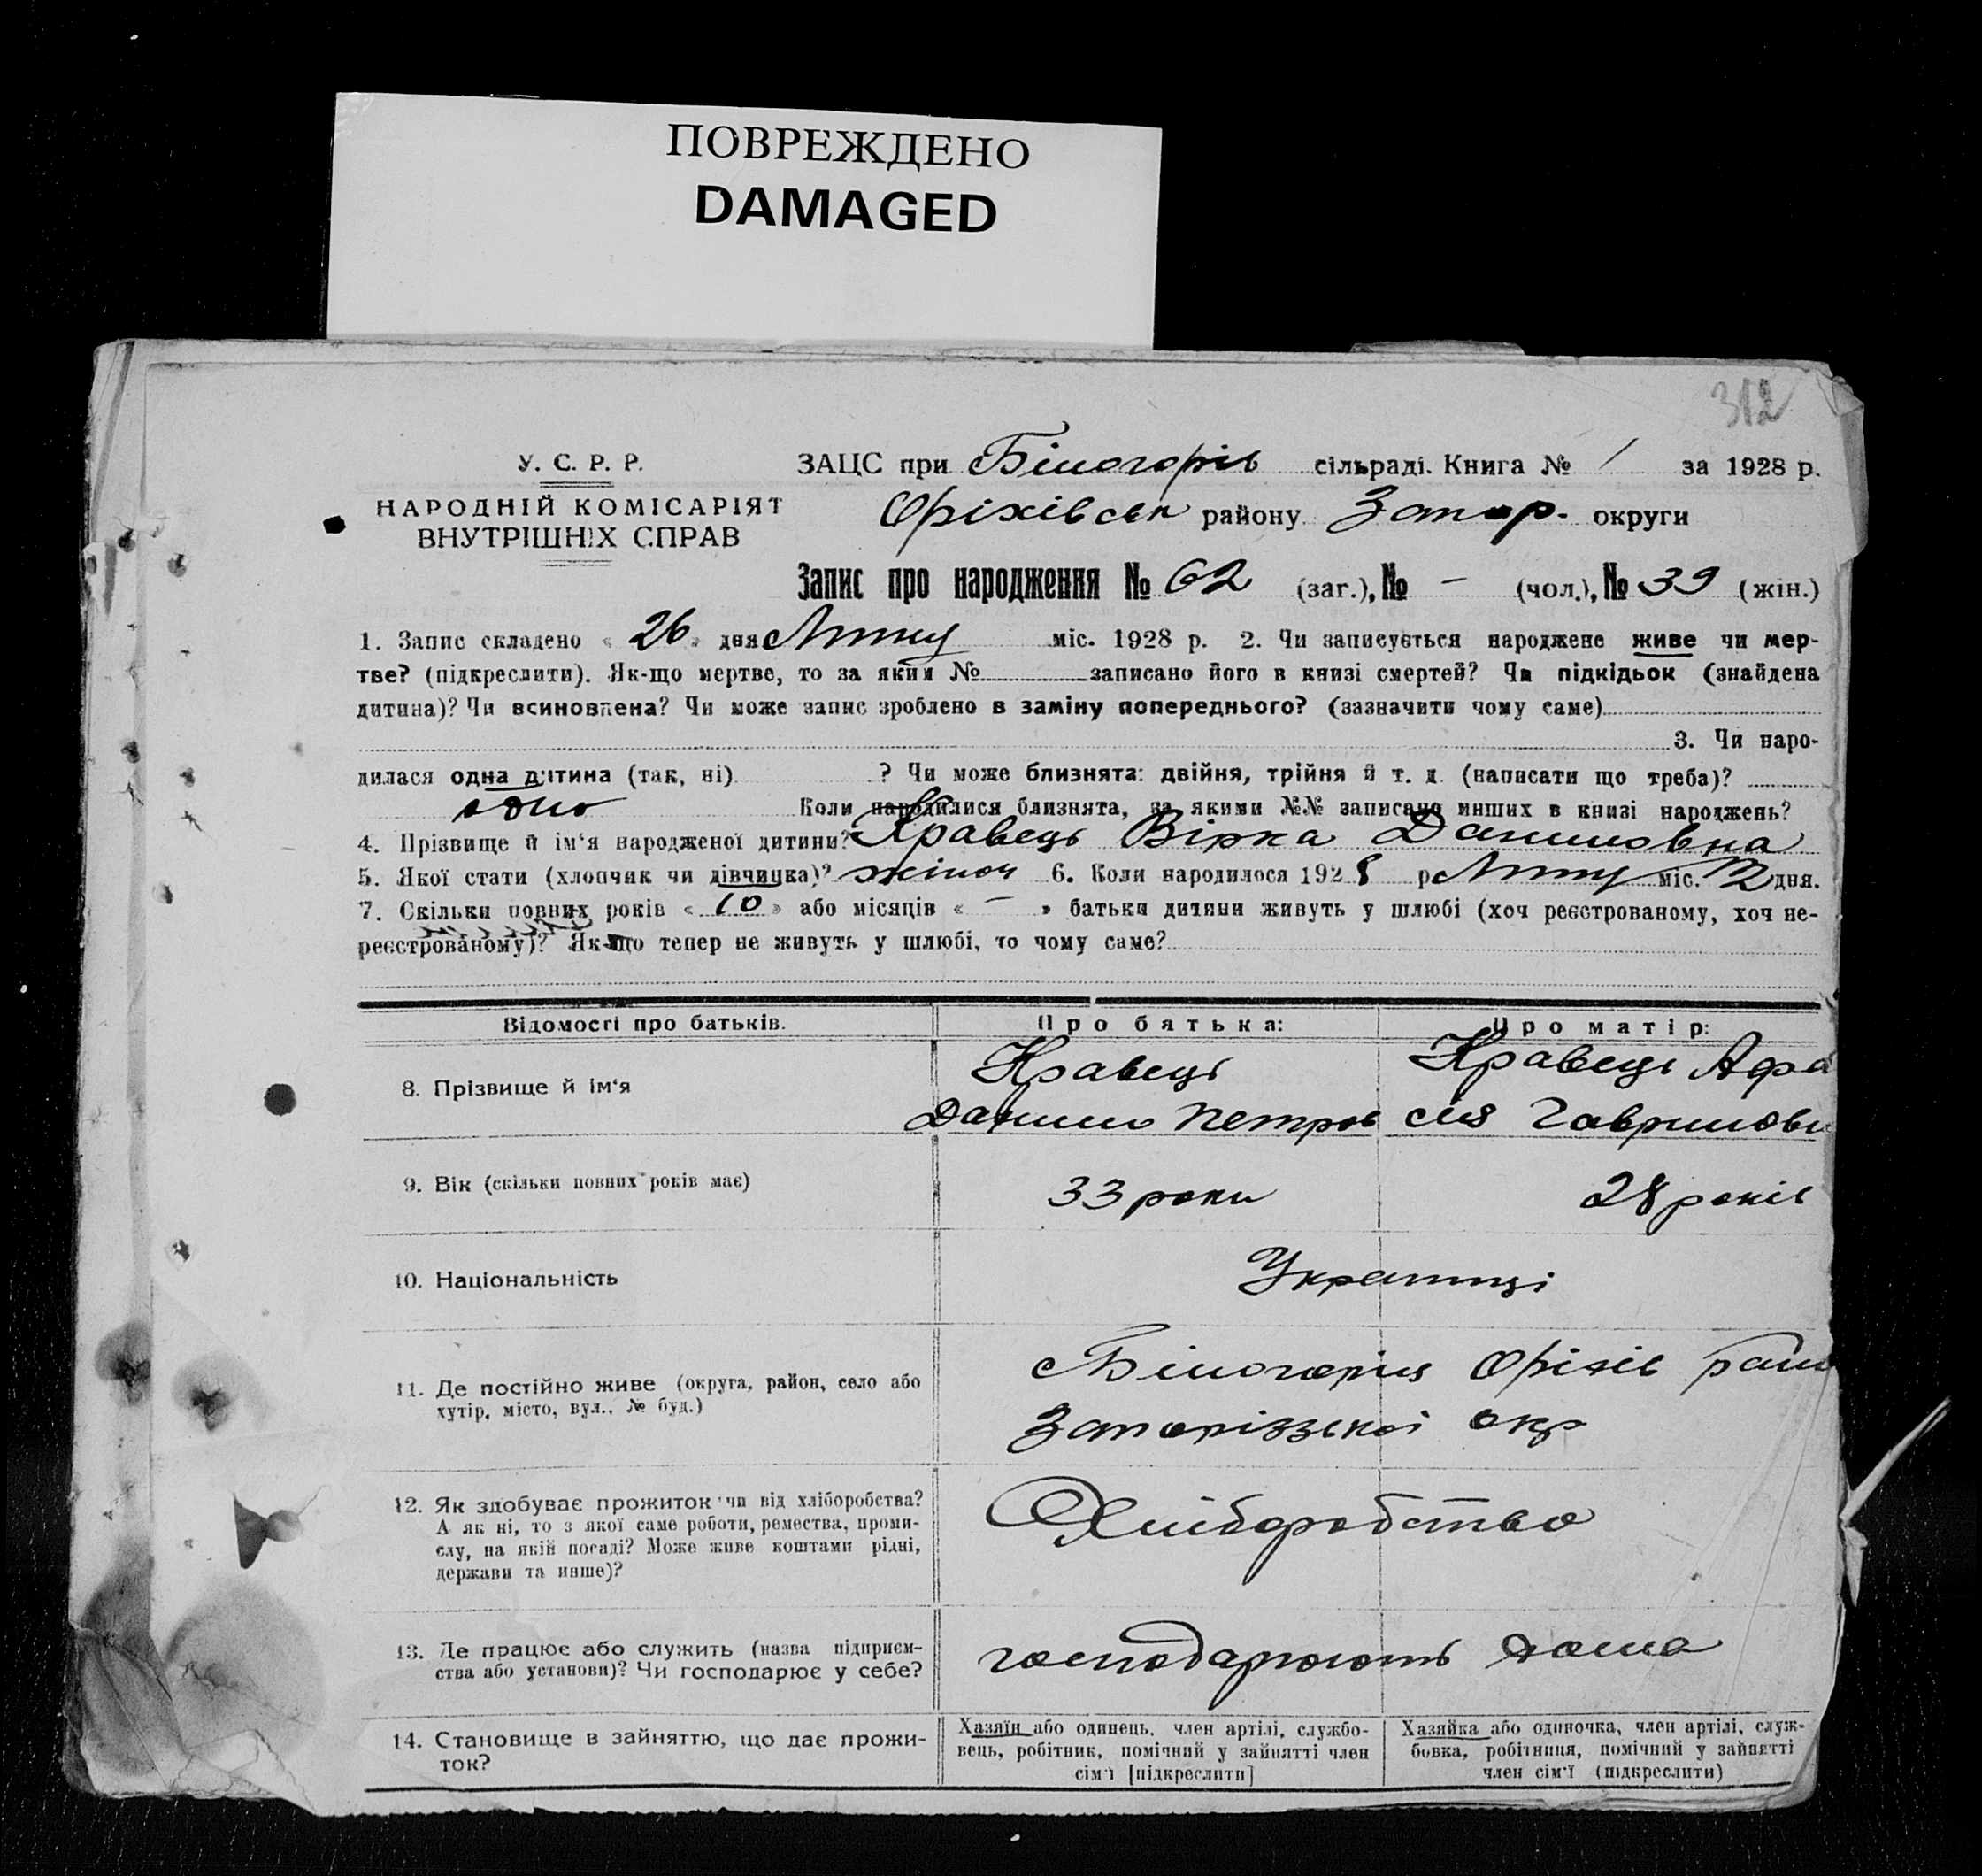 ПОВРЕЖДЕНО
DAMAGED
312
У. С. Р. Р.
НАРОДНІЙ КОМІСАРІЯТ
ВНУТРІШНІХ СПРАВ
ЗАЦС при Білогорів сільраді. Книга № 1 за 1928 р.
Оріхівськ району Запор. округи
Запис про народження № 62 (заг.), № - (чол.), № 39 (жін.)
1. Запис складено « 26 » дня Лютцу міс. 1928 р. 2. Чи записується народжене живе чи мер-
тве? (підкреслити). Як-що мертве, то за яким № записано його в книзі смертей? Чи підкідьок (знайдена
дитина)? Чи всиновлена? Чи може запис зроблено в заміну попереднього? (зазначити чому саме)
3. Чи наро-
дилася одна дитина (так, ні) ? Чи може близнята: двійня, трійня й т. д. (написати що треба)?
одно Коли народилися близнята, за якими №№ записано инших в книзі народжень?
4. Прізвище й ім'я народженої дитини? Кравець Вірка Даниловна
5. Якої стати (хлопчик чи дівчинка)? жіноч 6. Коли народилося 1928 р міс. 12 дня.
7. Скільки повних років « 10 » або місяців « - » батьки дитини живуть у шлюбі (хоч реєстрованому, хоч не-
реєстрованому)? Як-що тепер не живуть у шлюбі, то чому саме?
Відомості про батьків. Про батька: Про матір:
8. Прізвище й ім'я
Кравець
Данило Петров
Кравець Афа
сія Гаврилови
9. Вік (скільки повних років має) 33 роки 28 років
10. Національність Українці
11. Де постійно живе (округа, район, село або
хутір, місто, вул., № буд.)
Білогорія Оріхів рай
Запоріззької окр
12. Як здобуває прожиток чи від хліборобства?
А як ні, то з якої саме роботи, ремества, проми-
слу, на якій посаді? Може живе коштами рідні,
держави та инше)?
Хліборобство
13. Де працює або служить (назва підприєм-
ства або установи)? Чи господарює у себе?
господарюють дома
14. Становище в зайняттю, що дає прожи-
ток?
Хазяїн або одинець, член артілі, службо-
вець, робітник, помічний у зайнятті член
сім'ї [підкреслити]
Хазяйка або одиночка, член артілі, служ-
бовка, робітниця, помічний у зайнятті
член сім'ї (підкреслити)